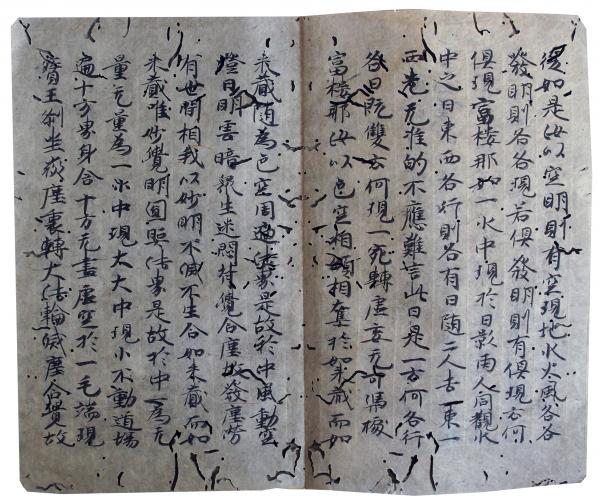 復如是汝以空明則有空現地水火風各各
發明則各各現若俱發明則有俱現云何
俱現富樓那如一水中現於日影兩人同觀水
中之日東西各行則各有日随二人去一東一
西先无准的不應難言此日是一云何各行
各日既雙云何現一宛轉虛妄无可馮據
富樓那汝以色空相傾相奪於如来藏而如
来藏随為色空周遍法界是故於中風動空
澄日明雲暗衆生迷悶背覺合塵故發塵勞
有世間相我以妙明不滅不生合如来藏而如
来藏唯妙覺明圓照法界是故於中一為无
量无量為一小中現大大中現小不動道場
遍十方界身含十方无盡虛空於一毛端現
寶王刹坐微塵裏轉大法輪滅塵合覺故